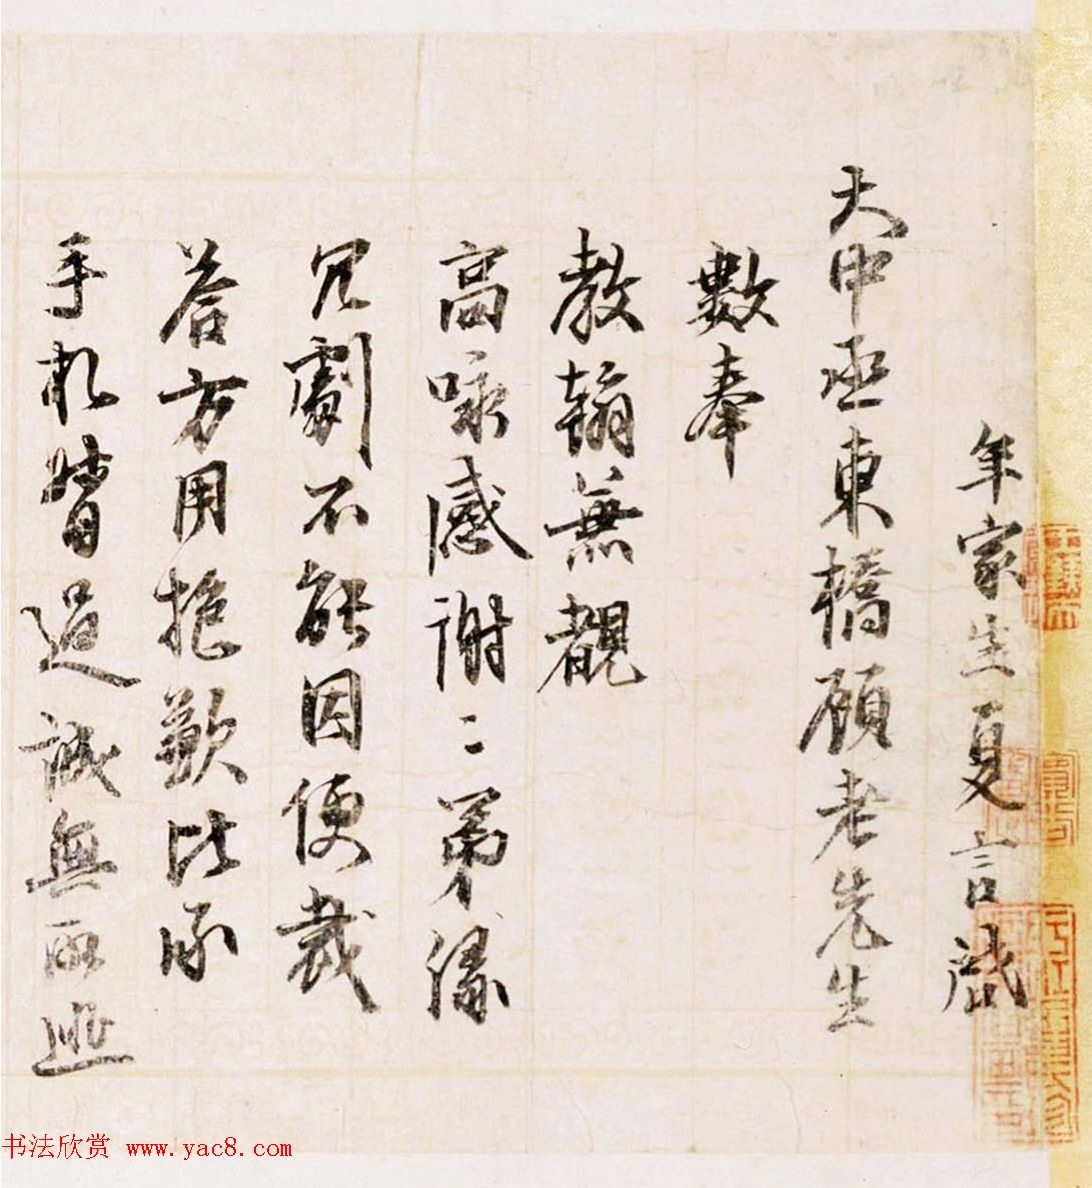 年家生夏言啟
大中丞東橋顧老先生
數奉
教翰無觀
高咏感謝二第緣
冗劇不能因便裁
荅方用抱歉比承
手札督過誠無所逃
书法欣赏 www.yac8.com